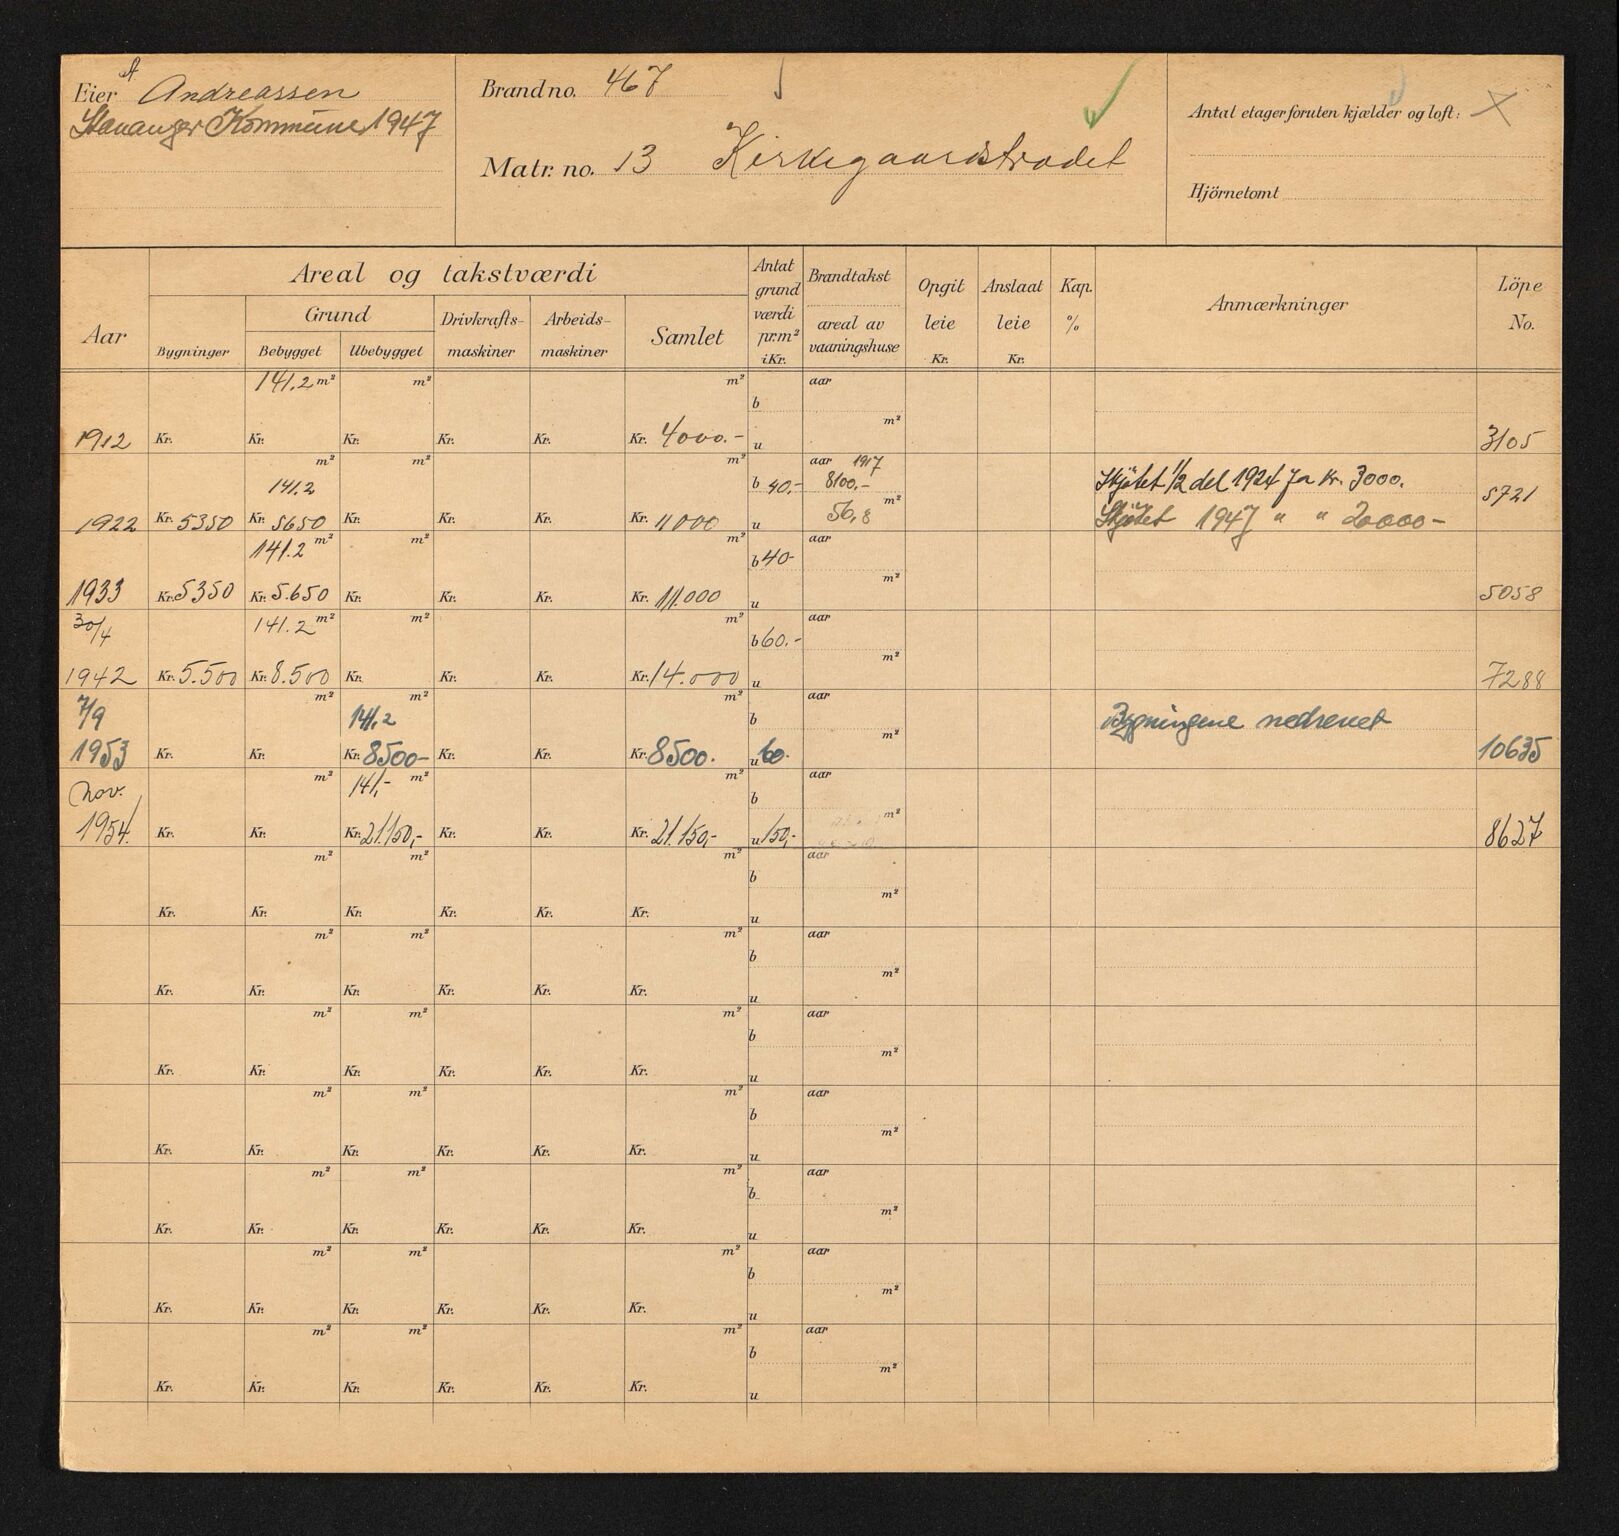 Eier A Andreassen
Stavanger Kommune 1947
Brand no. 467
Matr. no. 13 Kirkegaardstrædet
Antal etager foruten kjælder og loft: X
Hjörnetomt
Aar
Areal og takstværdi
Bygninger
Grund
Bebygget
Ubebygget
Drivkrafts-
maskiner
Arbeids-
maskiner
Samlet
Antat
grund
værdi
pr. m²
i Kr.
Brandtakst
areal av
vaaningshuse
Opgit
leie
Kr.
Anslaat
leie
Kr.
Kap.
%
Anmærkninger
Löpe
No.
141.2 m² m² m² aar
b
m²
1912 Kr. Kr. Kr. Kr. Kr. Kr. 4000.- u 3105
m² m² m² aar 1917
141.2 b 40.- 8100.- Skjøtet 1/2 del 1924 for kr. 3000.
m² 5721
1922 Kr. 5350 Kr. 5650 Kr. Kr. Kr. Kr. 11000 u 56,8 Skjøtet 1947 " " 20000-
141.2 m² m² m² aar
b 40-
m²
1933 Kr. 5350 Kr. 5.650 Kr. Kr. Kr. Kr. 11.000 u 5058
30/4 141.2 m² m² m² aar
b 60.-
m²
1942 Kr. 5.500 Kr. 8.500 Kr. Kr. Kr. Kr. 14.000 u 7288
7/9 m² m² m² aar
141,2 b Bygningene nedrevet
m²
1953 Kr. Kr. Kr. 8500- Kr. Kr. Kr. 8500. u 60. 10635
Nov. m² 141,- m² m² aar
b
m²
1954. Kr. Kr. Kr. 21.150,- Kr. Kr. Kr. 21.150,- u 150,- 8627
m² m² m² aar
b
m²
Kr. Kr. Kr. Kr. Kr. Kr. u
m² m² m² aar
b
m²
Kr. Kr. Kr. Kr. Kr. Kr. u
m² m² m² aar
b
m²
Kr. Kr. Kr. Kr. Kr. Kr. u
m² m² m² aar
b
m²
Kr. Kr. Kr. Kr. Kr. Kr. u
m² m² m² aar
b
m²
Kr. Kr. Kr. Kr. Kr. Kr. u
m² m² m² aar
b
m²
Kr. Kr. Kr. Kr. Kr. Kr. u
m² m² m² aar
b
m²
Kr. Kr. Kr. Kr. Kr. Kr. u